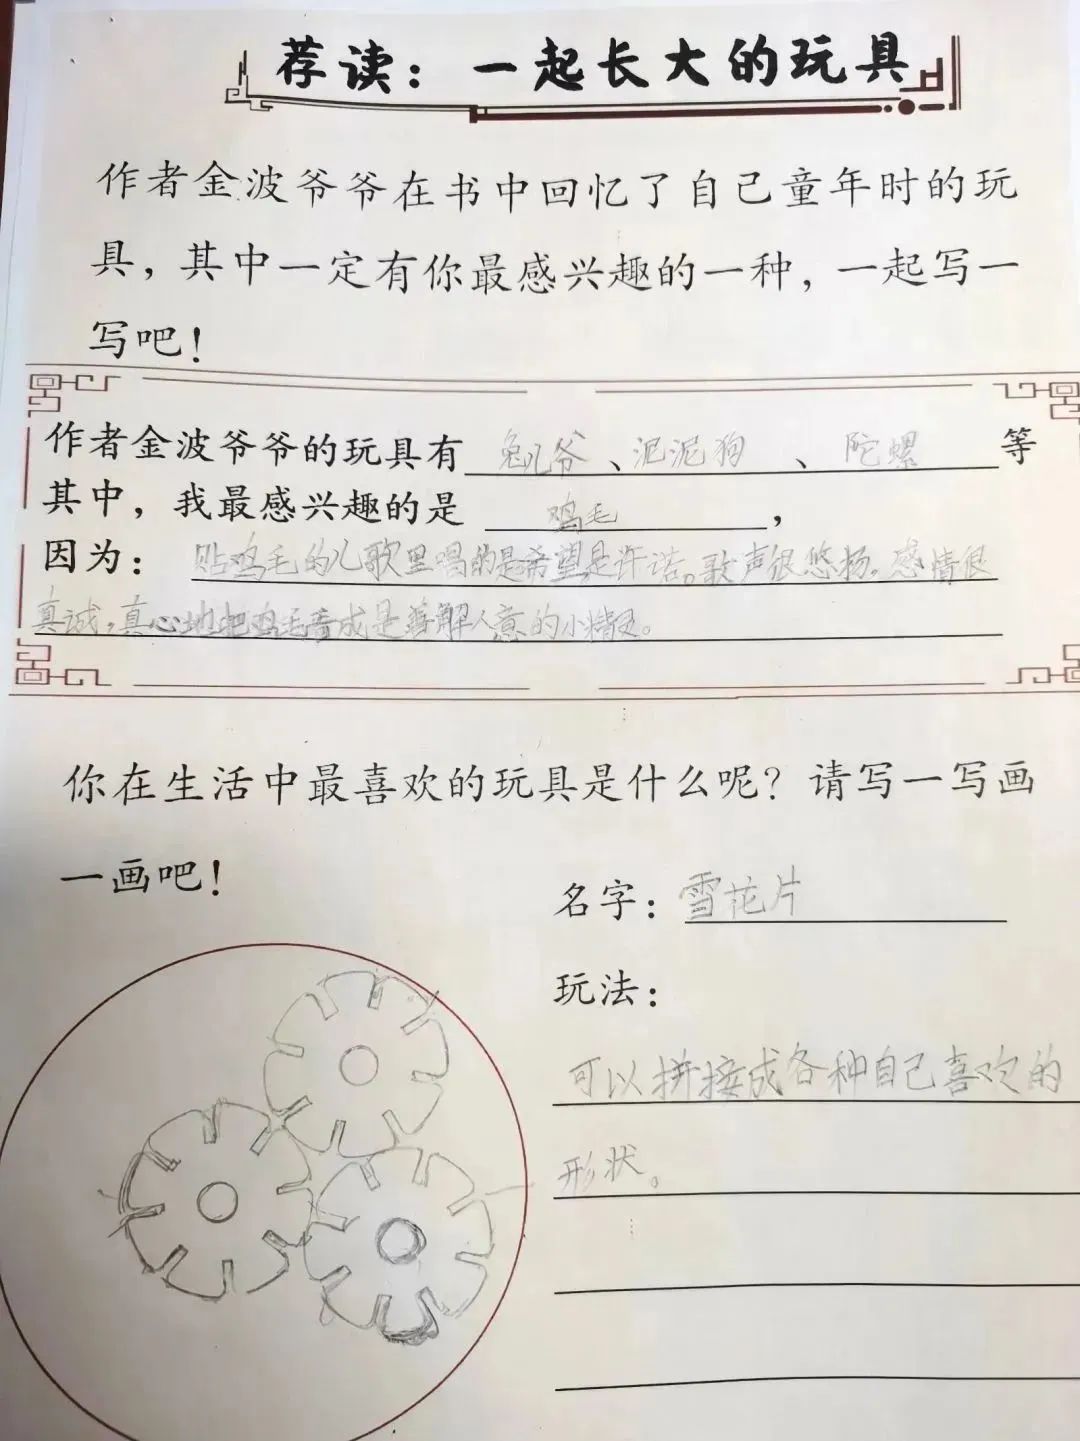 荐读：一起长大的玩具
作者金波爷爷在书中回忆了自己童年时的玩
具，其中一定有你最感兴趣的一种，一起写一
写吧！
作者金波爷爷的玩具有 兔儿爷 、泥泥狗 、 陀螺 等
其中，我最感兴趣的是 鸡毛 ，
因为： 贴鸡毛的儿歌里唱的是希望是许诺。歌声很悠扬。感情很
真诚，真心地把鸡毛看成是善解人意的小精灵。
你在生活中最喜欢的玩具是什么呢？请写一写画
一画吧！
名字：雪花片
玩法：
可以拼接成各种自己喜欢的
形状。